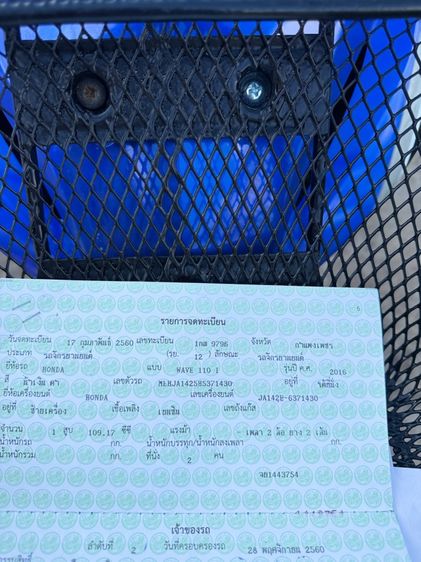 รายการจดทะเบียน
วันจดทะเบียน 17 กุมภาพันธ์ 2560 เลขทะเบียน 1กส 9796 จังหวัด กำแพงเพชร
ประเภท รถจักรยานยนต์ (รย. 12 ) ลักษณะ รถจักรยานยนต์
ยี่ห้อรถ HONDA แบบ WAVE 110 I รุ่นปี ค.ศ. 2016
สี น้ำเงิน ดำ เลขตัวรถ อยู่ที่
ยี่ห้อเครื่องยนต์ HONDA เลขเครื่องยนต์ JA142E-6371430
อยู่ที่ ซ้ายเครื่อง เชื้อเพลิง เบนซิน เลขถังแก๊ส
จำนวน 1 สูบ 109.17 ซีซี แรงม้า เพลา 2 ล้อ ยาง 2 เส้น
น้ำหนักรถ กก. น้ำหนักบรรทุก/น้ำหนักลงเพลา กก.
น้ำหนักรวม กก. ที่นั่ง 2 คน
1443754
เจ้าของรถ
ลำดับที่ 2 วันที่ครอบครองรถ 28 พฤศจิกายน 2560